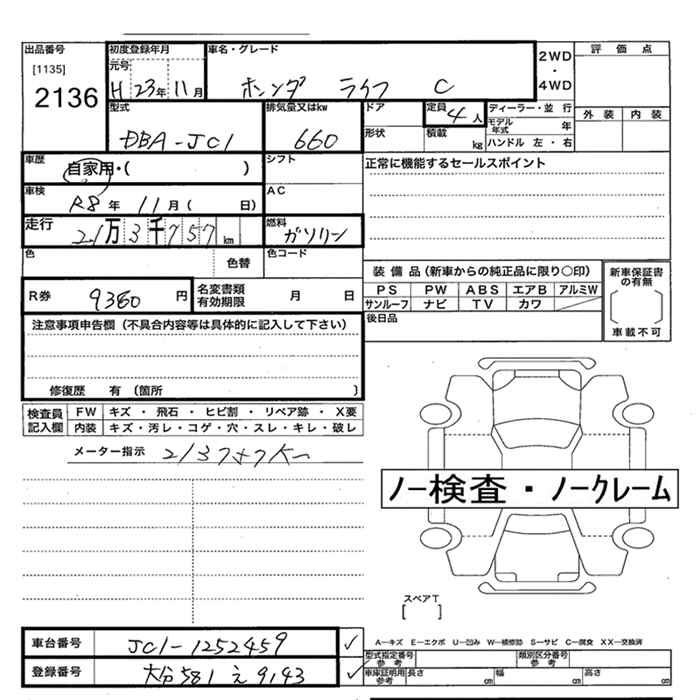 出品番号
[1135]
2136
初度登録年月
元号
H 23年 11月
車名・グレード
ホンダ ライフ C
2WD
・
4WD
評 価 点
外 装 内 装
型式
DBA-JC1
排気量又はkw
660
ドア
定員
4人
形状
積載
kg
ディーラー・並 行
モデル年式 年
ハンドル 左・右
車歴
自家用・( )
シフト
正常に機能するセールスポイント
車検
R8年 11月( 日)
AC
走行
21万3千757km
燃料
ガソリン
色
色替
色コード
R券
9360円
名変書類
有効期限 月 日
装 備 品 (新車からの純正品に限り○印)
PS PW ABS エアB アルミW
サンルーフ ナビ TV カワ
新車保証書
の有無
車載不可
後日品
注意事項申告欄 (不具合内容等は具体的に記入して下さい)
修復歴 有 (箇所 )
検査員
記入欄
FW キズ ・ 飛石 ・ ヒビ割 ・ リペア跡 ・ X要
内装 キズ・汚レ・コゲ・穴・スレ・キレ・破レ
メーター指示 213757K
ノー検査・ノークレーム
スペアT
[ ]
A-キズ E-エクボ U-凹み W-補修跡 S-サビ C-腐食 XX-交換済
車台番号 JC1-1252459 ✓
登録番号 大分 581 え 9143 ✓
型式指定番号
参考
類別区分番号
参考
車庫証明用
参考
長さ cm 幅 cm 高さ cm